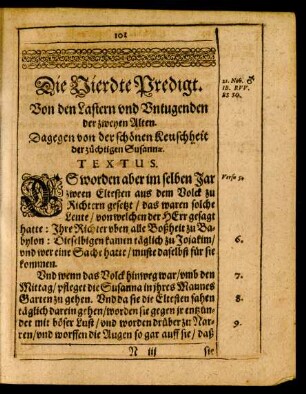 101
Die Vierdte Predigt.
Von den Lastern vnd Vntugenden
der zweyen Alten.
Dagegen von der schönen Keuschheit
der züchtigen Susannæ.
TEXTUS.
ES worden aber im selben Jar
zween Eltesten aus dem Volck zu
Richtern gesetzt / das waren solche
Leute / von welchen der HErr gesagt
hatte: Jhre Richter vben alle Boßheit zu Ba-
bylon: Dieselbigen kamen täglich zu Jojakim /
vnd wer eine Sache hatte / muste daselbst für sie
kommen.
Vnd wenn das Volck hinweg war / vmb den
Mittag / pfleget die Susanna in jhres Mannes
Garten zu gehen. Vnd da sie die Eltesten sahen
täglich darein gehen / worden sie gegen jr entzün-
det mit böser Lust / vnd worden drüber zu Nar-
ren / vnd worffen die Augen so gar auff sie / daß
N iij
sie
Verse 5.
6.
7.
8.
9.